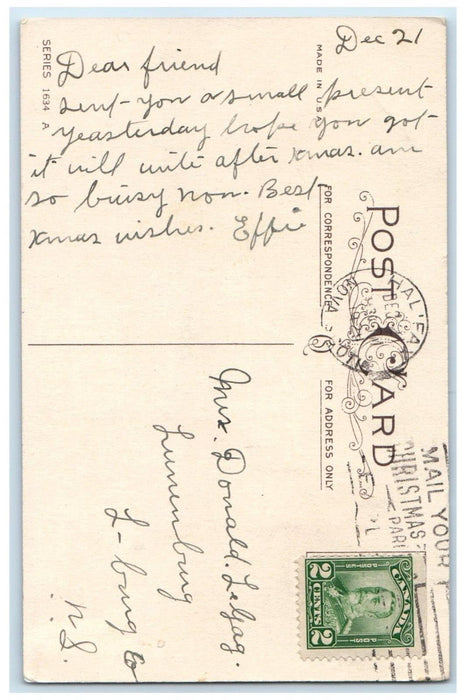 Dec 21
Dear friend
sent you a small present
yeasterday hope you got
it will write after xmas. am
so buisy now. Best
xmas wishes. Effie
SERIES 1634 A
MADE IN USA
FOR CORRESPONDENCE
POST CARD
FOR ADDRESS ONLY
HALIFAX
DEC
NOVA SCOTIA
MAIL YOUR
CHRISTMAS
PAR
Mrs. Donald.
Lunenburg
L-burg Co
N.S.
POSTES POST
CANADA
2 CENTS 2